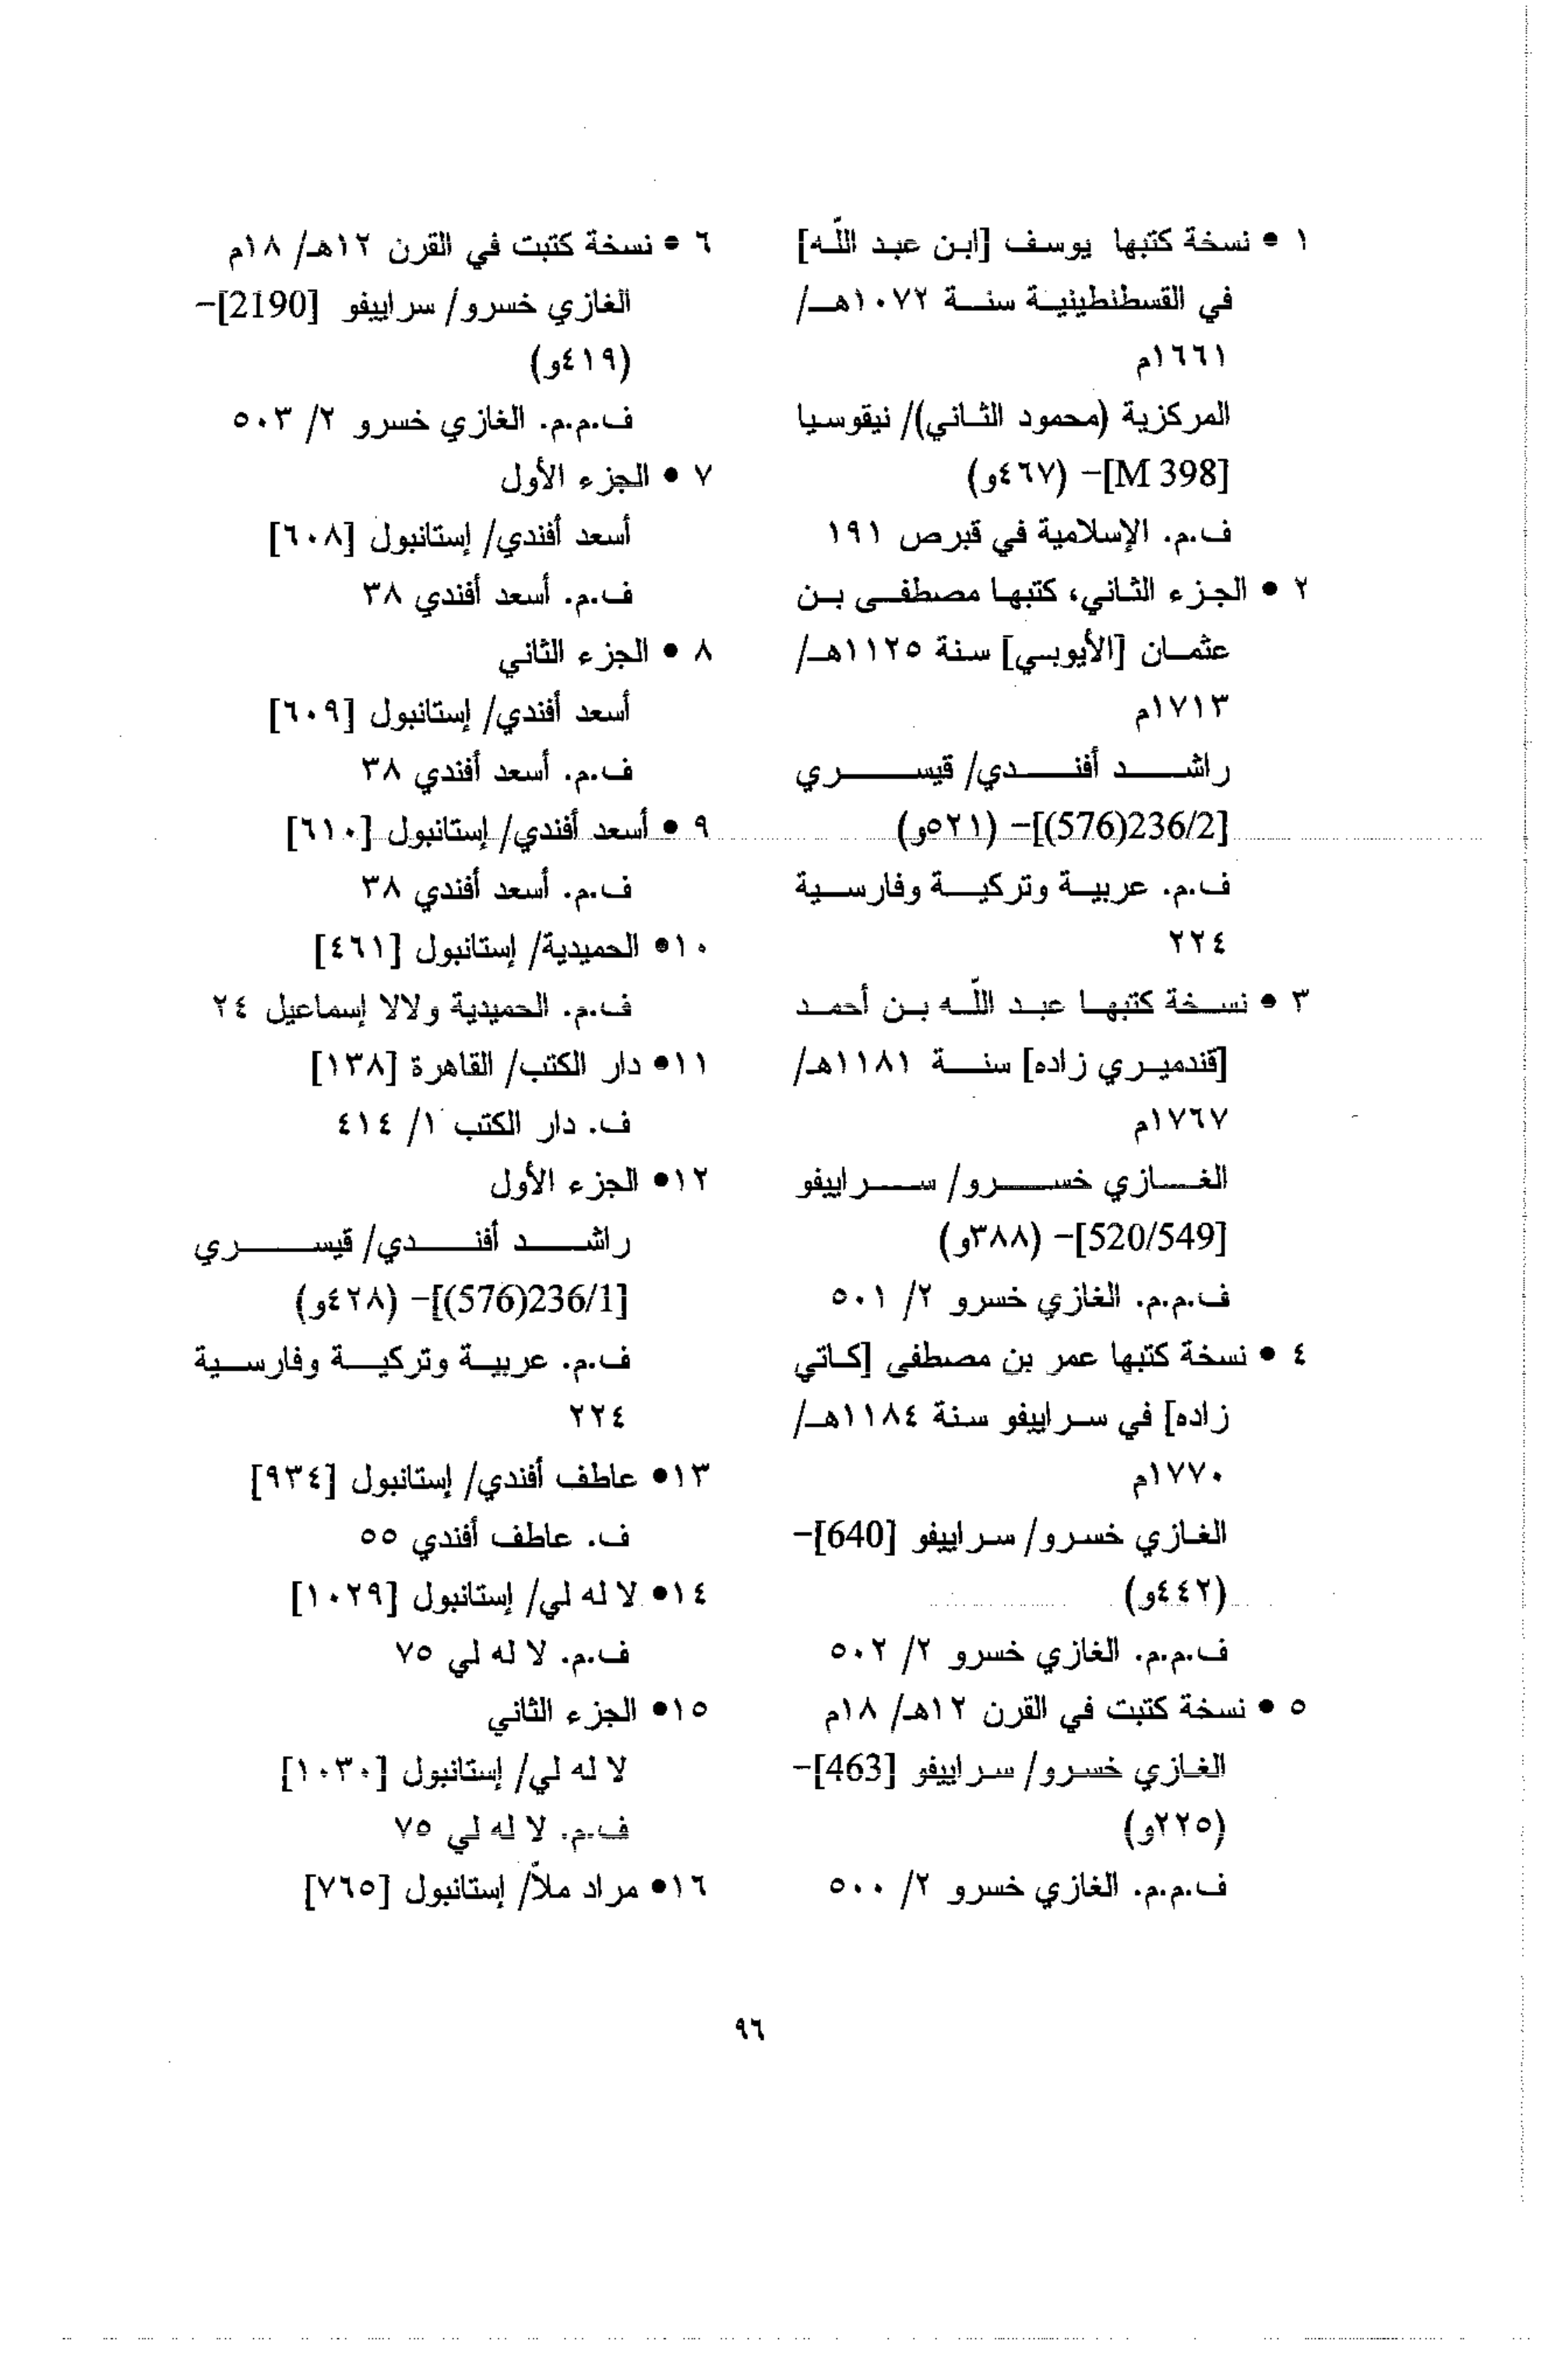 ١ • نسخة كتبها يوسف [ابن عبد اللّه]
في القسطنطينية سنة ١٠٧٢هـ/
١٦٦١م
المركزية (محمود الثاني)/ نيقوسيا
[M 398]– (٤٦٧و)
ف.م. الإسلامية في قبرص ١٩١
٢ • الجزء الثاني، كتبها مصطفى بن
عثمان [الأيوبي] سنة ١١٢٥هـ/
١٧١٣م
راشد أفندي/ قيسري
[236/2(576)]– (٥٢١و)
ف.م. عربية وتركية وفارسية
٢٢٤
٣ • نسخة كتبها عبد اللّه بن أحمد
[قندميري زاده] سنة ١١٨١هـ/
١٧٦٧م
الغازي خسرو/ سراييفو
[520/549]– (٣٨٨و)
ف.م.م. الغازي خسرو ٢/ ٥٠١
٤ • نسخة كتبها عمر بن مصطفى [كاتي
زاده] في سراييفو سنة ١١٨٤هـ/
١٧٧٠م
الغازي خسرو/ سراييفو [640]–
(٤٤٢و)
ف.م.م. الغازي خسرو ٢/ ٥٠٢
٥ • نسخة كتبت في القرن ١٢هـ/ ١٨م
الغازي خسرو/ سراييفو [463]–
(٢٢٥و)
ف.م.م. الغازي خسرو ٢/ ٥٠٠
٦ • نسخة كتبت في القرن ١٢هـ/ ١٨م
الغازي خسرو/ سراييفو [2190]–
(٤١٩و)
ف.م.م. الغازي خسرو ٢/ ٥٠٣
٧ • الجزء الأول
أسعد أفندي/ إستانبول [٦٠٨]
ف.م. أسعد أفندي ٣٨
٨ • الجزء الثاني
أسعد أفندي/ إستانبول [٦٠٩]
ف.م. أسعد أفندي ٣٨
٩ • أسعد أفندي/ إستانبول [٦١٠]
ف.م. أسعد أفندي ٣٨
١٠• الحميدية/ إستانبول [٤٦١]
ف.م. الحميدية ولالا إسماعيل ٢٤
١١• دار الكتب/ القاهرة [١٣٨]
ف. دار الكتب ١/ ٤١٤
١٢• الجزء الأول
راشد أفندي/ قيسري
[236/1(576)]– (٤٢٨و)
ف.م. عربية وتركية وفارسية
٢٢٤
١٣• عاطف أفندي/ إستانبول [٩٣٤]
ف. عاطف أفندي ٥٥
١٤• لا له لي/ إستانبول [١٠٢٩]
ف.م. لا له لي ٧٥
١٥• الجزء الثاني
لا له لي/ إستانبول [١٠٣٠]
ف.م. لا له لي ٧٥
١٦• مراد ملاّ/ إستانبول [٧٦٥]
٩٦